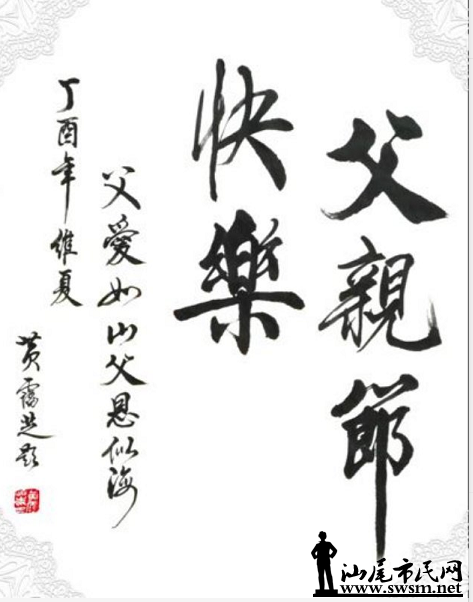 父親節
快樂
父愛如山父恩似海
丁酉年維夏
黃霭芝題
汕尾市民网
www.swsm.net